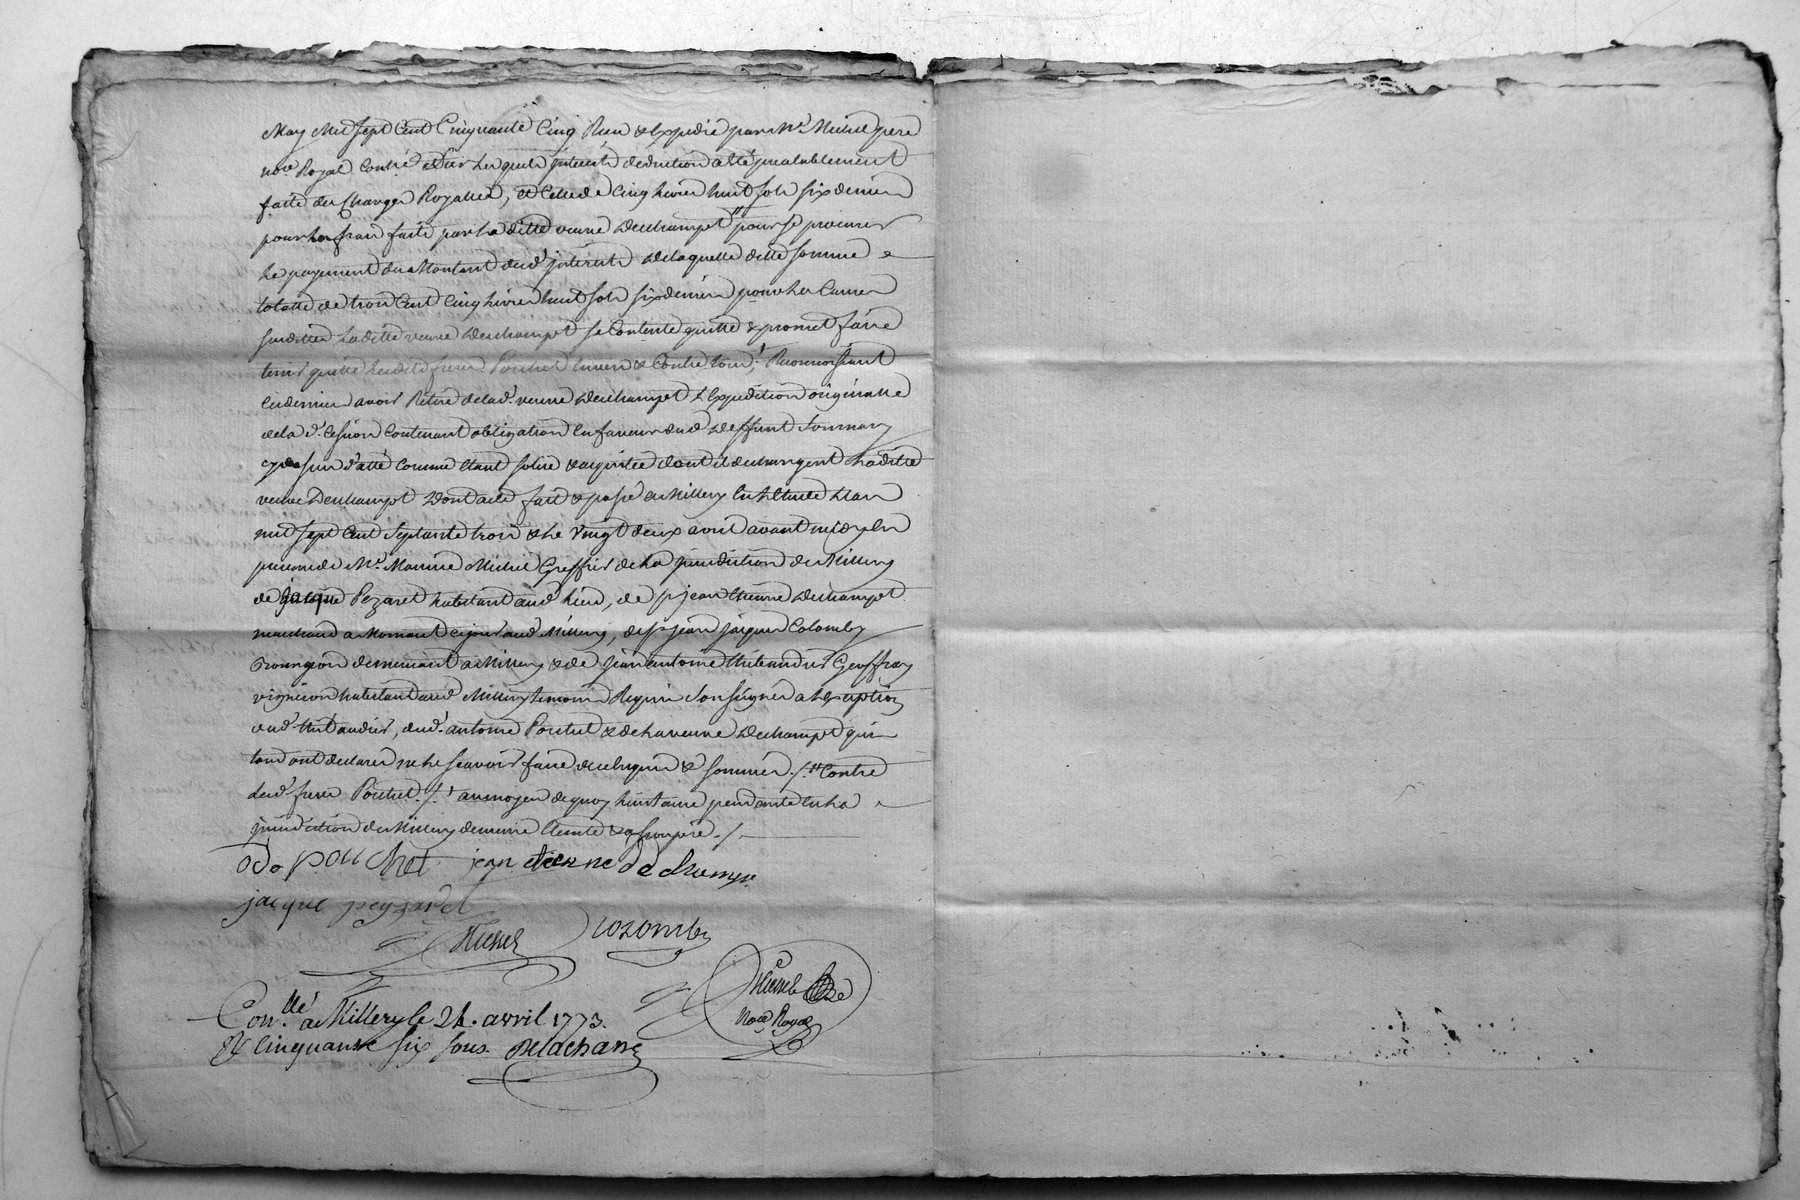 May Mil sept Cent Cinquante Cinq Reçu & Expedié par Mr. Michel pere
nore Royal Contré desquels interêts deduction a été prealablement
faite des Charges Royalles, et Celle de Cinq livres huit sols six deniers
pour les frais faits par la ditte veuve Deschampt pour se procurer
Le payement du Montant desd. interêts de laquelle ditte somme
totalle de trois Cent Cinq livres huit sols six deniers pour les Causes
susdittes laditte veuve Deschampt se Contente quitte & promet faire
tenir quitte lesdits freres Pouchet Envers & Contre tous; Reconnoissant
Ces derniers avoir Retiré de lad. veuve Deschampt L'Expedition originalle
de la d. Cession Contenant obligation En faveur dud. Deffunt
sus datté Comme Etant solue & acquittée dont ils dechargent Laditte
veuve Deschampt Dont acte fait & passé a Millery En L'Etude L'an
mil sept Cent septante trois & Le vingt deux avril avant midy En
presence de Mr. Michel Greffier de La jurisdiction de Millery
de jacque Pezaret habitant aud. lieu, de sr. jean Etienne Deschampt
marchand a Mornant Ce jour aud. Millery, de sr. jean jaques Colomby
demeurant a Millery & de jean antoine Geoffray
vigneron habitant aud. Millery temoins Requis soussignés a L'Exception
dud. dud. antoine Pouchet & de la veuve Deschampt qui
tous ont declarés ne le sçavoir faire de ce Enquis & sommés ./. Contre
lesd. freres Pouchet ./. au moyen de quoy L'instance pendante En La
jurisdiction de Millery demeure Eteinte & assoupie ./.
odo pouchet jean etienne dechampt
jacque peyzaret
Michel Colomby
Michel
Nore Royal
Conllé a Millery le 24. avril 1773.
R/ Cinquante six sous. Delachann